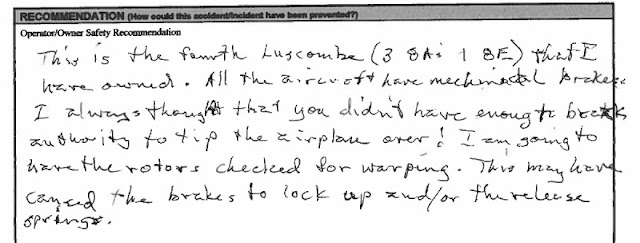 RECOMMENDATION (How could this accident/incident have been prevented?)
Operator/Owner Safety Recommendation
This is the fourth Luscombe (3 8As 1 8E) that I
have owned. All the aircraft have mechanical brakes
I always thought that you didn't have enough brakes
authority to tip the airplane over! I am going to
have the rotors checked for warping. This may have
caused the brakes to lock up and/or the release
springs.